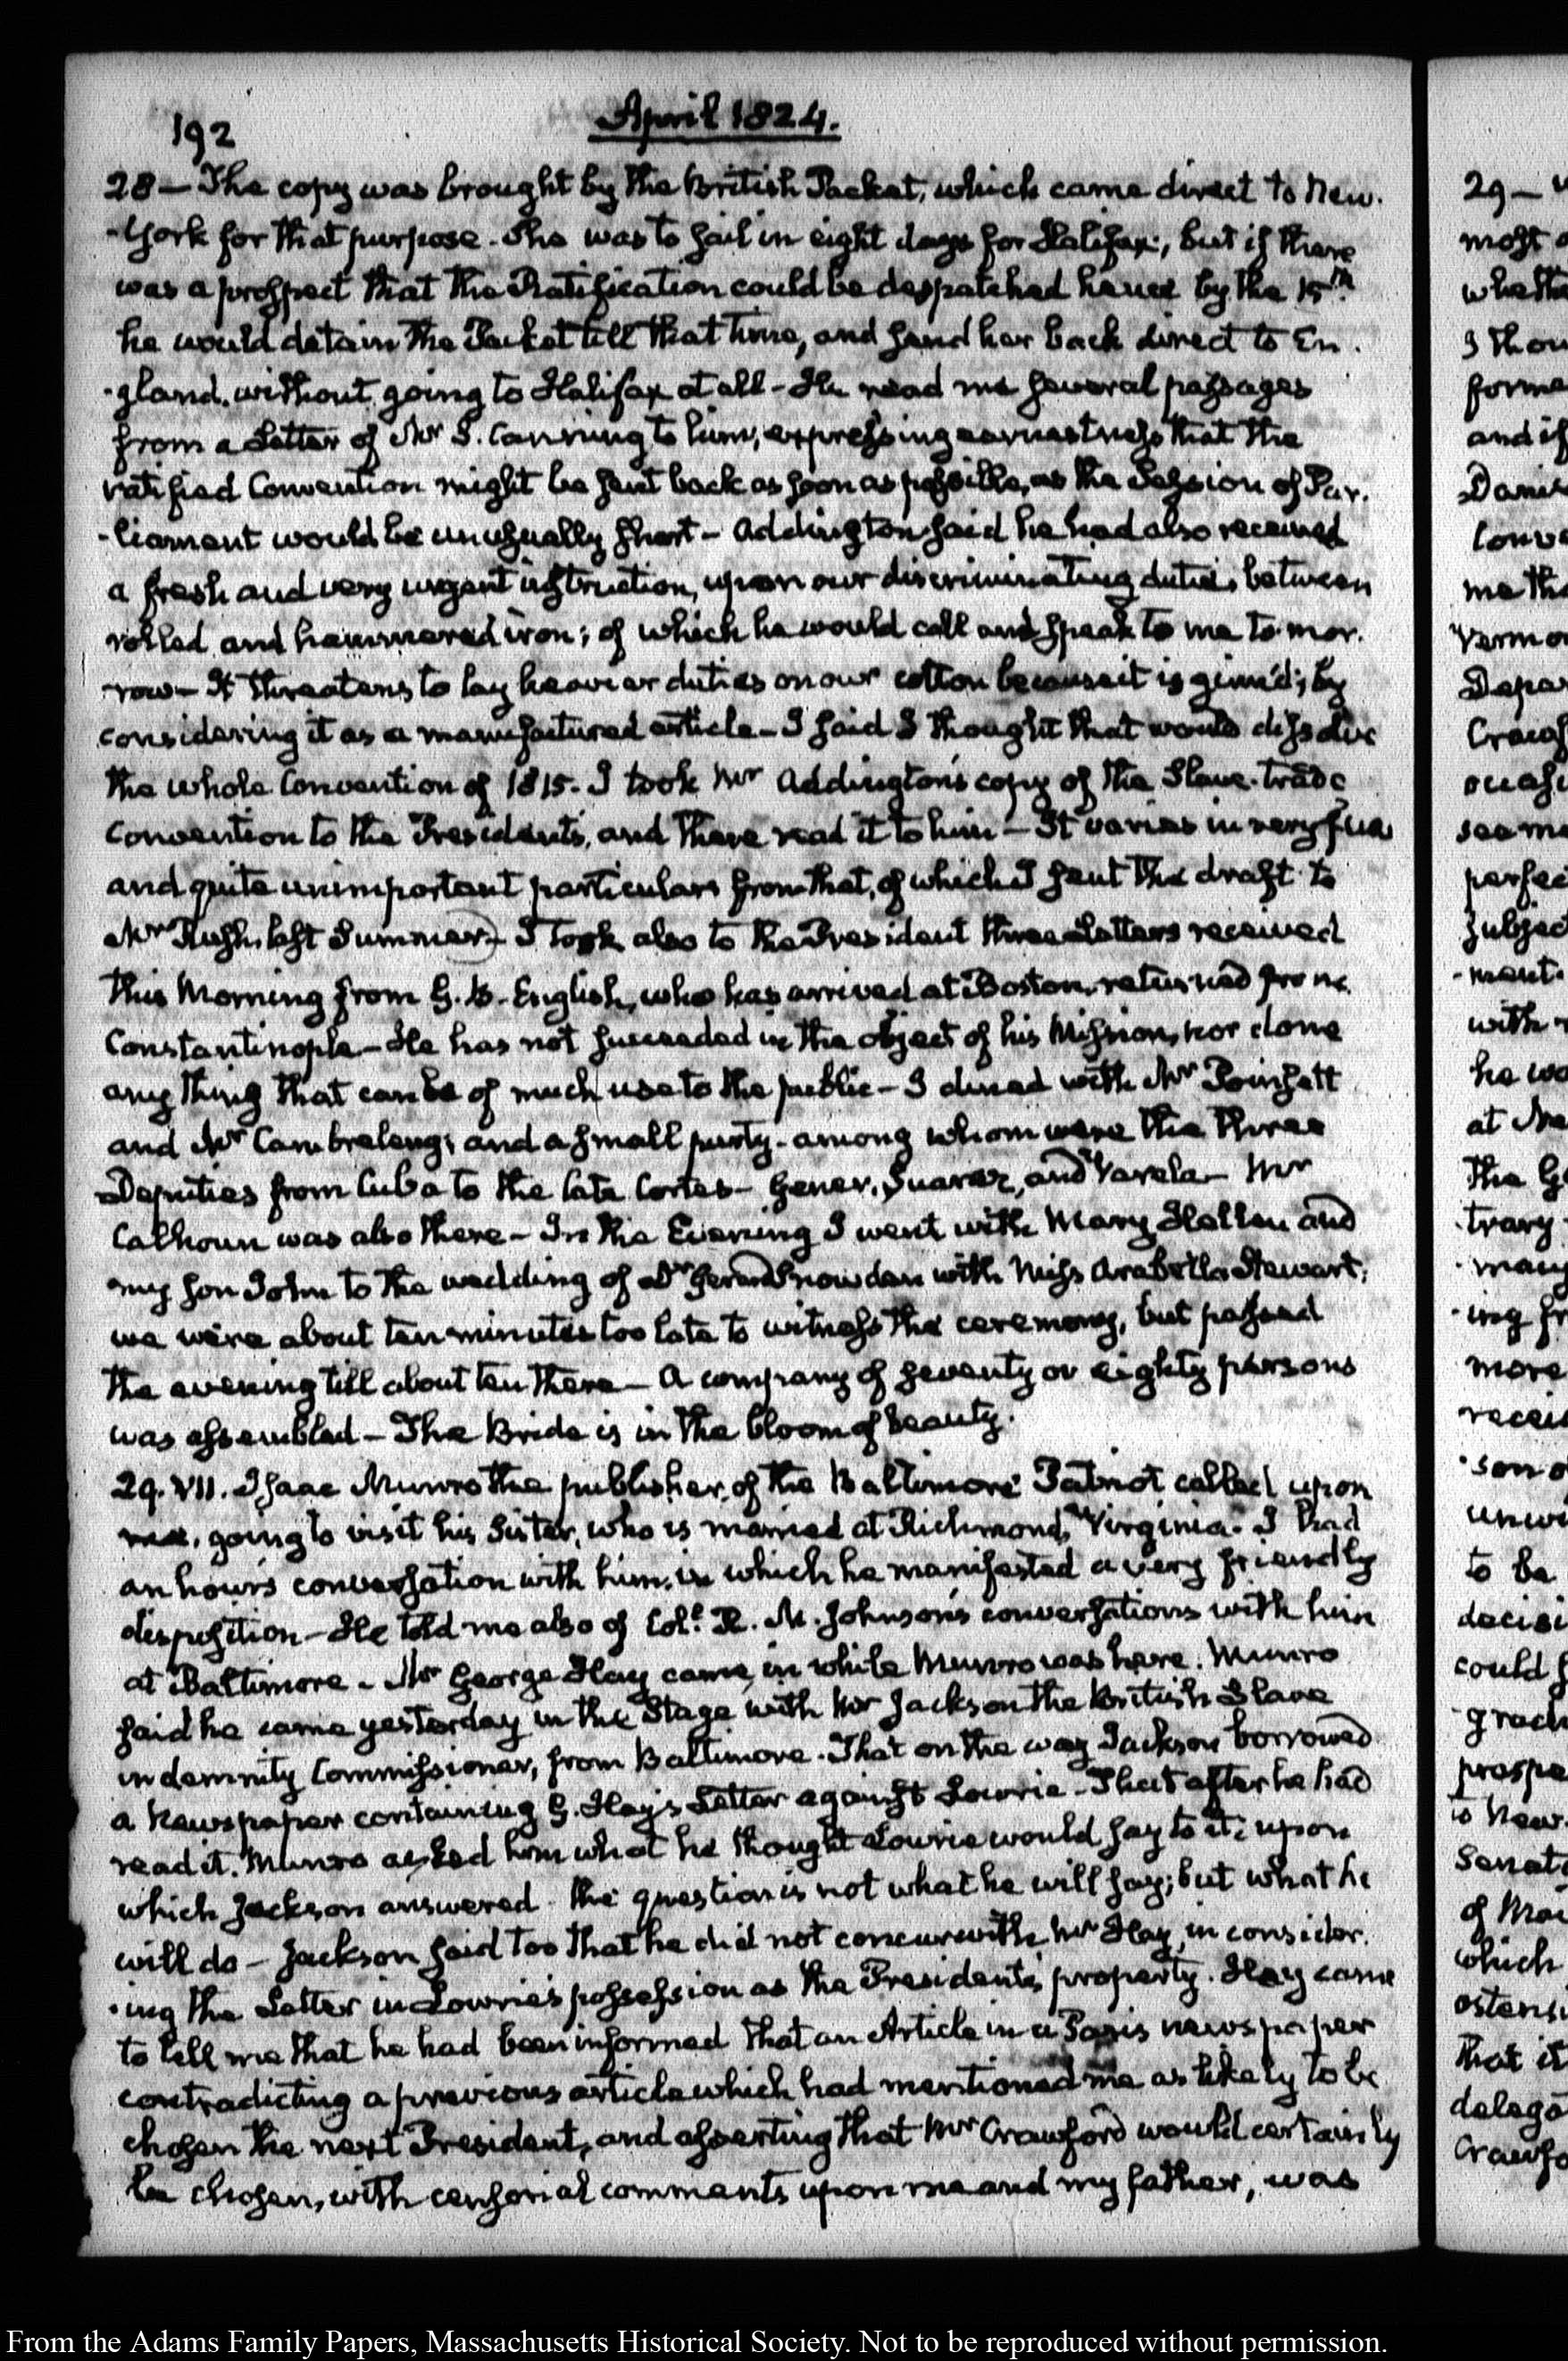 192
April 1824.
28 — The copy was brought by the British Packet, which came direct to New-
-York for that purpose. She was to sail in eight days for Halifax; but if there
was a prospect that the Ratification could be despatched hence by the 15th.
he would detain the Packet till that time, and send her back direct to En-
-gland, without going to Halifax at all — He read me several passages
from a Letter of Mr S. Canning to him, expressing earnestness that the
ratified Convention might be sent back as soon as possible, as the Session of Par-
-liament would be unusually short — Addington said he had also received
a fresh and very urgent instruction, upon our discriminating duties between
rolled and hammered iron; of which he would call and speak to me to-mor-
-row — It threatens to lay heavier duties on our cotton because it is ginn'd; by
considering it as a manufactured article — I said I thought that would dissolve
the whole Convention of 1815. I took Mr Addington's copy of the Slave-trade
Convention to the President's, and there read it to him — It varies in very few
and quite unimportant particulars from that, of which I sent the draft to
Mr Rush, last Summer — I took also to the President three Letters received
this Morning from G. B. English, who has arrived at Boston, returned from
Constantinople — He has not succeeded in the object of his Mission, nor done
any thing that can be of much use to the public — I dined with Mr Poinsett
and Mr Cambreleng; and a small party — among whom were the three
Deputies from Cuba to the late Cortes — Gener, Suarez, and Varela — Mr
Calhoun was also there — In the Evening I went with Mary Hellen and
my son John to the wedding of Dr Gerard Snowden with Miss Arabella Stewart;
we were about ten minutes too late to witness the ceremony, but passed
the evening till about ten there — A company of seventy or eighty persons
was assembled — The Bride is in the bloom of beauty.
29. VII. Isaac Munro the publisher of the Baltimore Patriot called upon
me, going to visit his Sister, who is married at Richmond, Virginia. I had
an hour's conversation with him, in which he manifested a very friendly
disposition — He told me also of Coll. R. M. Johnson's conversations with him
at Baltimore. Mr George Hay came in while Munro was here. Munro
said he came yesterday in the Stage with Mr Jackson the British Slave
indemnity Commissioner, from Baltimore. That on the way Jackson borrowed
a Newspaper containing G. Hay's Letter against Lowrie — That after he had
read it, Munro asked him what he thought Lowrie would say to it; upon
which Jackson answered — the question is not what he will say; but what he
will do — Jackson said too that he did not concur with Mr Hay, in consider-
-ing the Letter in Lowrie's possession as the President's property. Hay came
to tell me that he had been informed that an Article in a Paris newspaper
contradicting a previous article which had mentioned me as likely to be
chosen the next President, and asserting that Mr Crawford would certainly
be chosen, with censorial comments upon me and my father, was
29 —
most
I
and if
Conv
me
Verm
Crawf
seem
subjec
-ment
with
at
trary
more
recei
-son
to be
decisi
could
prospe
Senat
which
ostensi
that it
delega
Crawfo
From the Adams Family Papers, Massachusetts Historical Society. Not to be reproduced without permission.